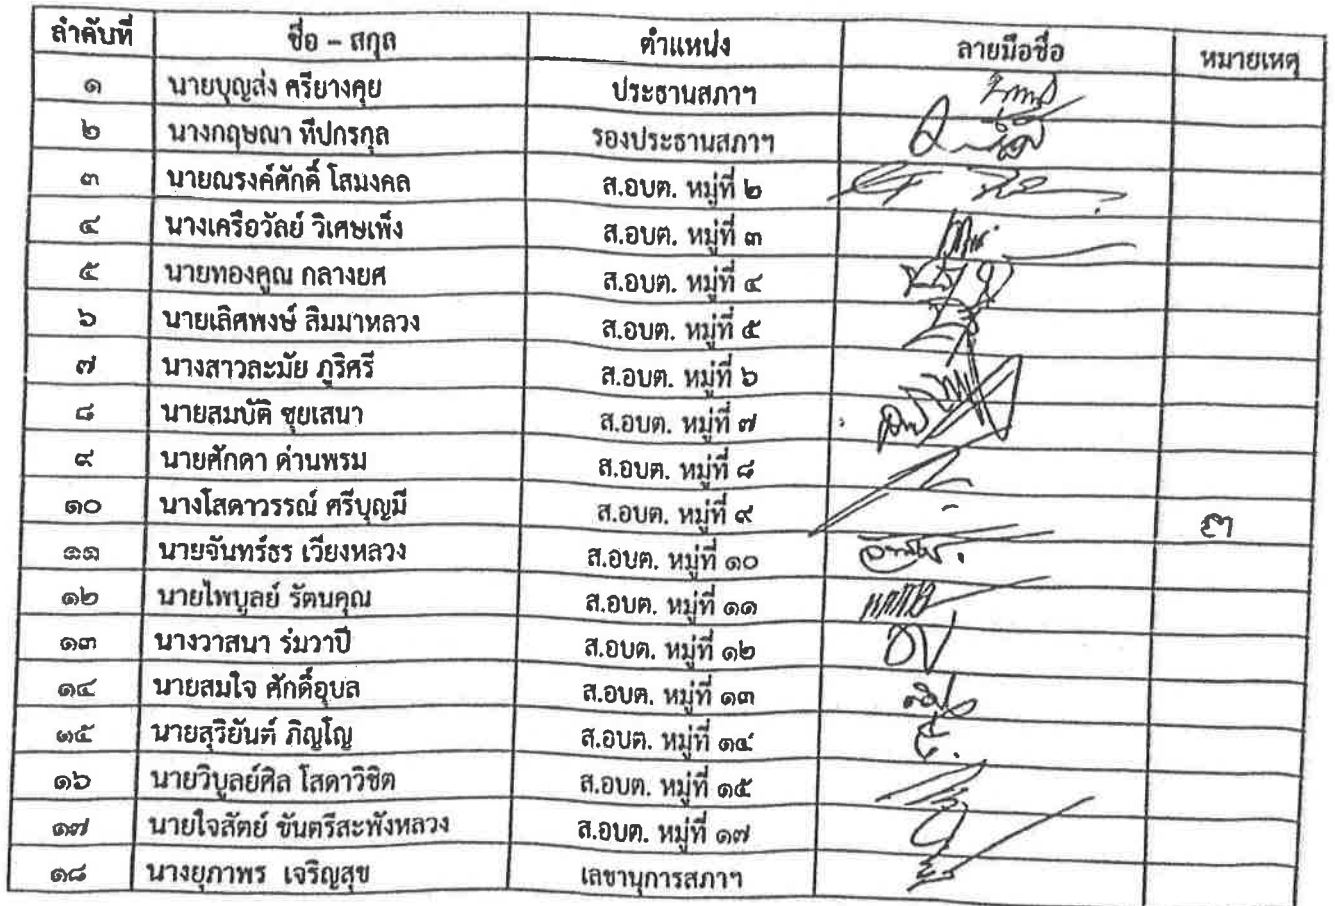 ลำดับที่ ชื่อ – สกุล ตำแหน่ง ลายมือชื่อ หมายเหตุ
๑ นายบุญส่ง ศรียางคุย ประธานสภาฯ
๒ นางกฤษณา ทีปกรกุล รองประธานสภาฯ
๓ นายณรงค์ศักดิ์ โสมงคล ส.อบต. หมู่ที่ ๒
๔ นางเครือวัลย์ วิเศษเพ็ง ส.อบต. หมู่ที่ ๓
๕ นายทองคูณ กลางยศ ส.อบต. หมู่ที่ ๔
๖ นายเลิศพงษ์ สิมมาหลวง ส.อบต. หมู่ที่ ๕
๗ นางสาวละมัย ภูริศรี ส.อบต. หมู่ที่ ๖
๘ นายสมบัติ ชุยเสนา ส.อบต. หมู่ที่ ๗
๙ นายศักดา ด่านพรม ส.อบต. หมู่ที่ ๘
๑๐ นางโสดาวรรณ์ ศรีบุญมี ส.อบต. หมู่ที่ ๙
๑๑ นายจันทร์ธร เวียงหลวง ส.อบต. หมู่ที่ ๑๐
๑๒ นายไพบูลย์ รัตนคุณ ส.อบต. หมู่ที่ ๑๑
๑๓ นางวาสนา ร่มวาปี ส.อบต. หมู่ที่ ๑๒
๑๔ นายสมใจ ศักดิ์อุบล ส.อบต. หมู่ที่ ๑๓
๑๕ นายสุริยันต์ ภิญโญ ส.อบต. หมู่ที่ ๑๔
๑๖ นายวิบูลย์ศิล โสดาวิชิต ส.อบต. หมู่ที่ ๑๕
๑๗ นายใจสัตย์ ขันตรีสะพังหลวง ส.อบต. หมู่ที่ ๑๗
๑๘ นางยุภาพร เจริญสุข เลขานุการสภาฯ